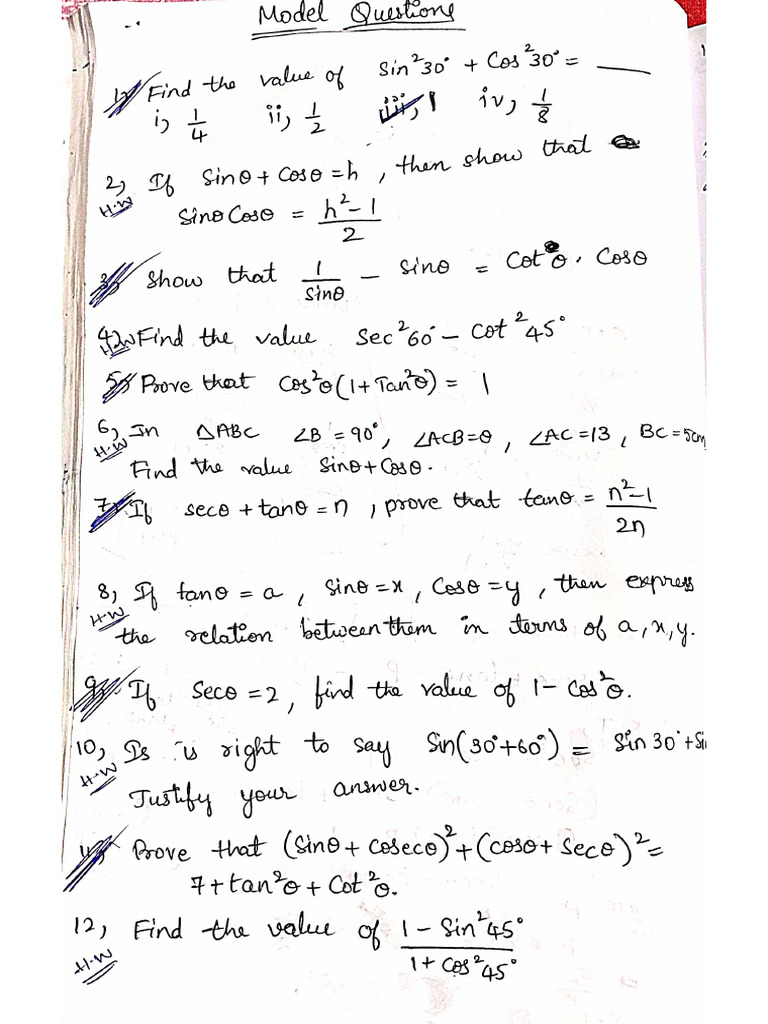 Model Questions
1, Find the value of Sin²30° + Cos²30° = ___
i, 1/4 ii, 1/2 iii, 1 iv, 1/8
2, If Sinθ + Cosθ = h, then show that
H.W SinθCosθ = h²-1/2
3, Show that 1/Sinθ - Sinθ = Cotθ. Cosθ
4, H.W Find the value Sec²60° - Cot²45°
5, Prove that Cos²θ(1+Tan²θ) = 1
6, In ΔABC ∠B = 90°, ∠ACB=θ, ∠AC=13, BC=5cm
H.W Find the value Sinθ+Cosθ.
7, If secθ + tanθ = n, prove that tanθ = n²-1/2n
8, If tanθ = a, Sinθ=x, Cosθ=y, then express
H.W the relation between them in terms of a, x, y.
9, If Secθ = 2, find the value of 1- Cos²θ.
10, Is is right to say Sin(30°+60°) = Sin 30°+Si
H.W Justify your answer.
11, Prove that (Sinθ + Cosecθ)²+(Cosθ+Secθ)²=
7+tan²θ + Cot²θ.
12, Find the value of 1 - Sin²45°/1+Cos²45°
H.W